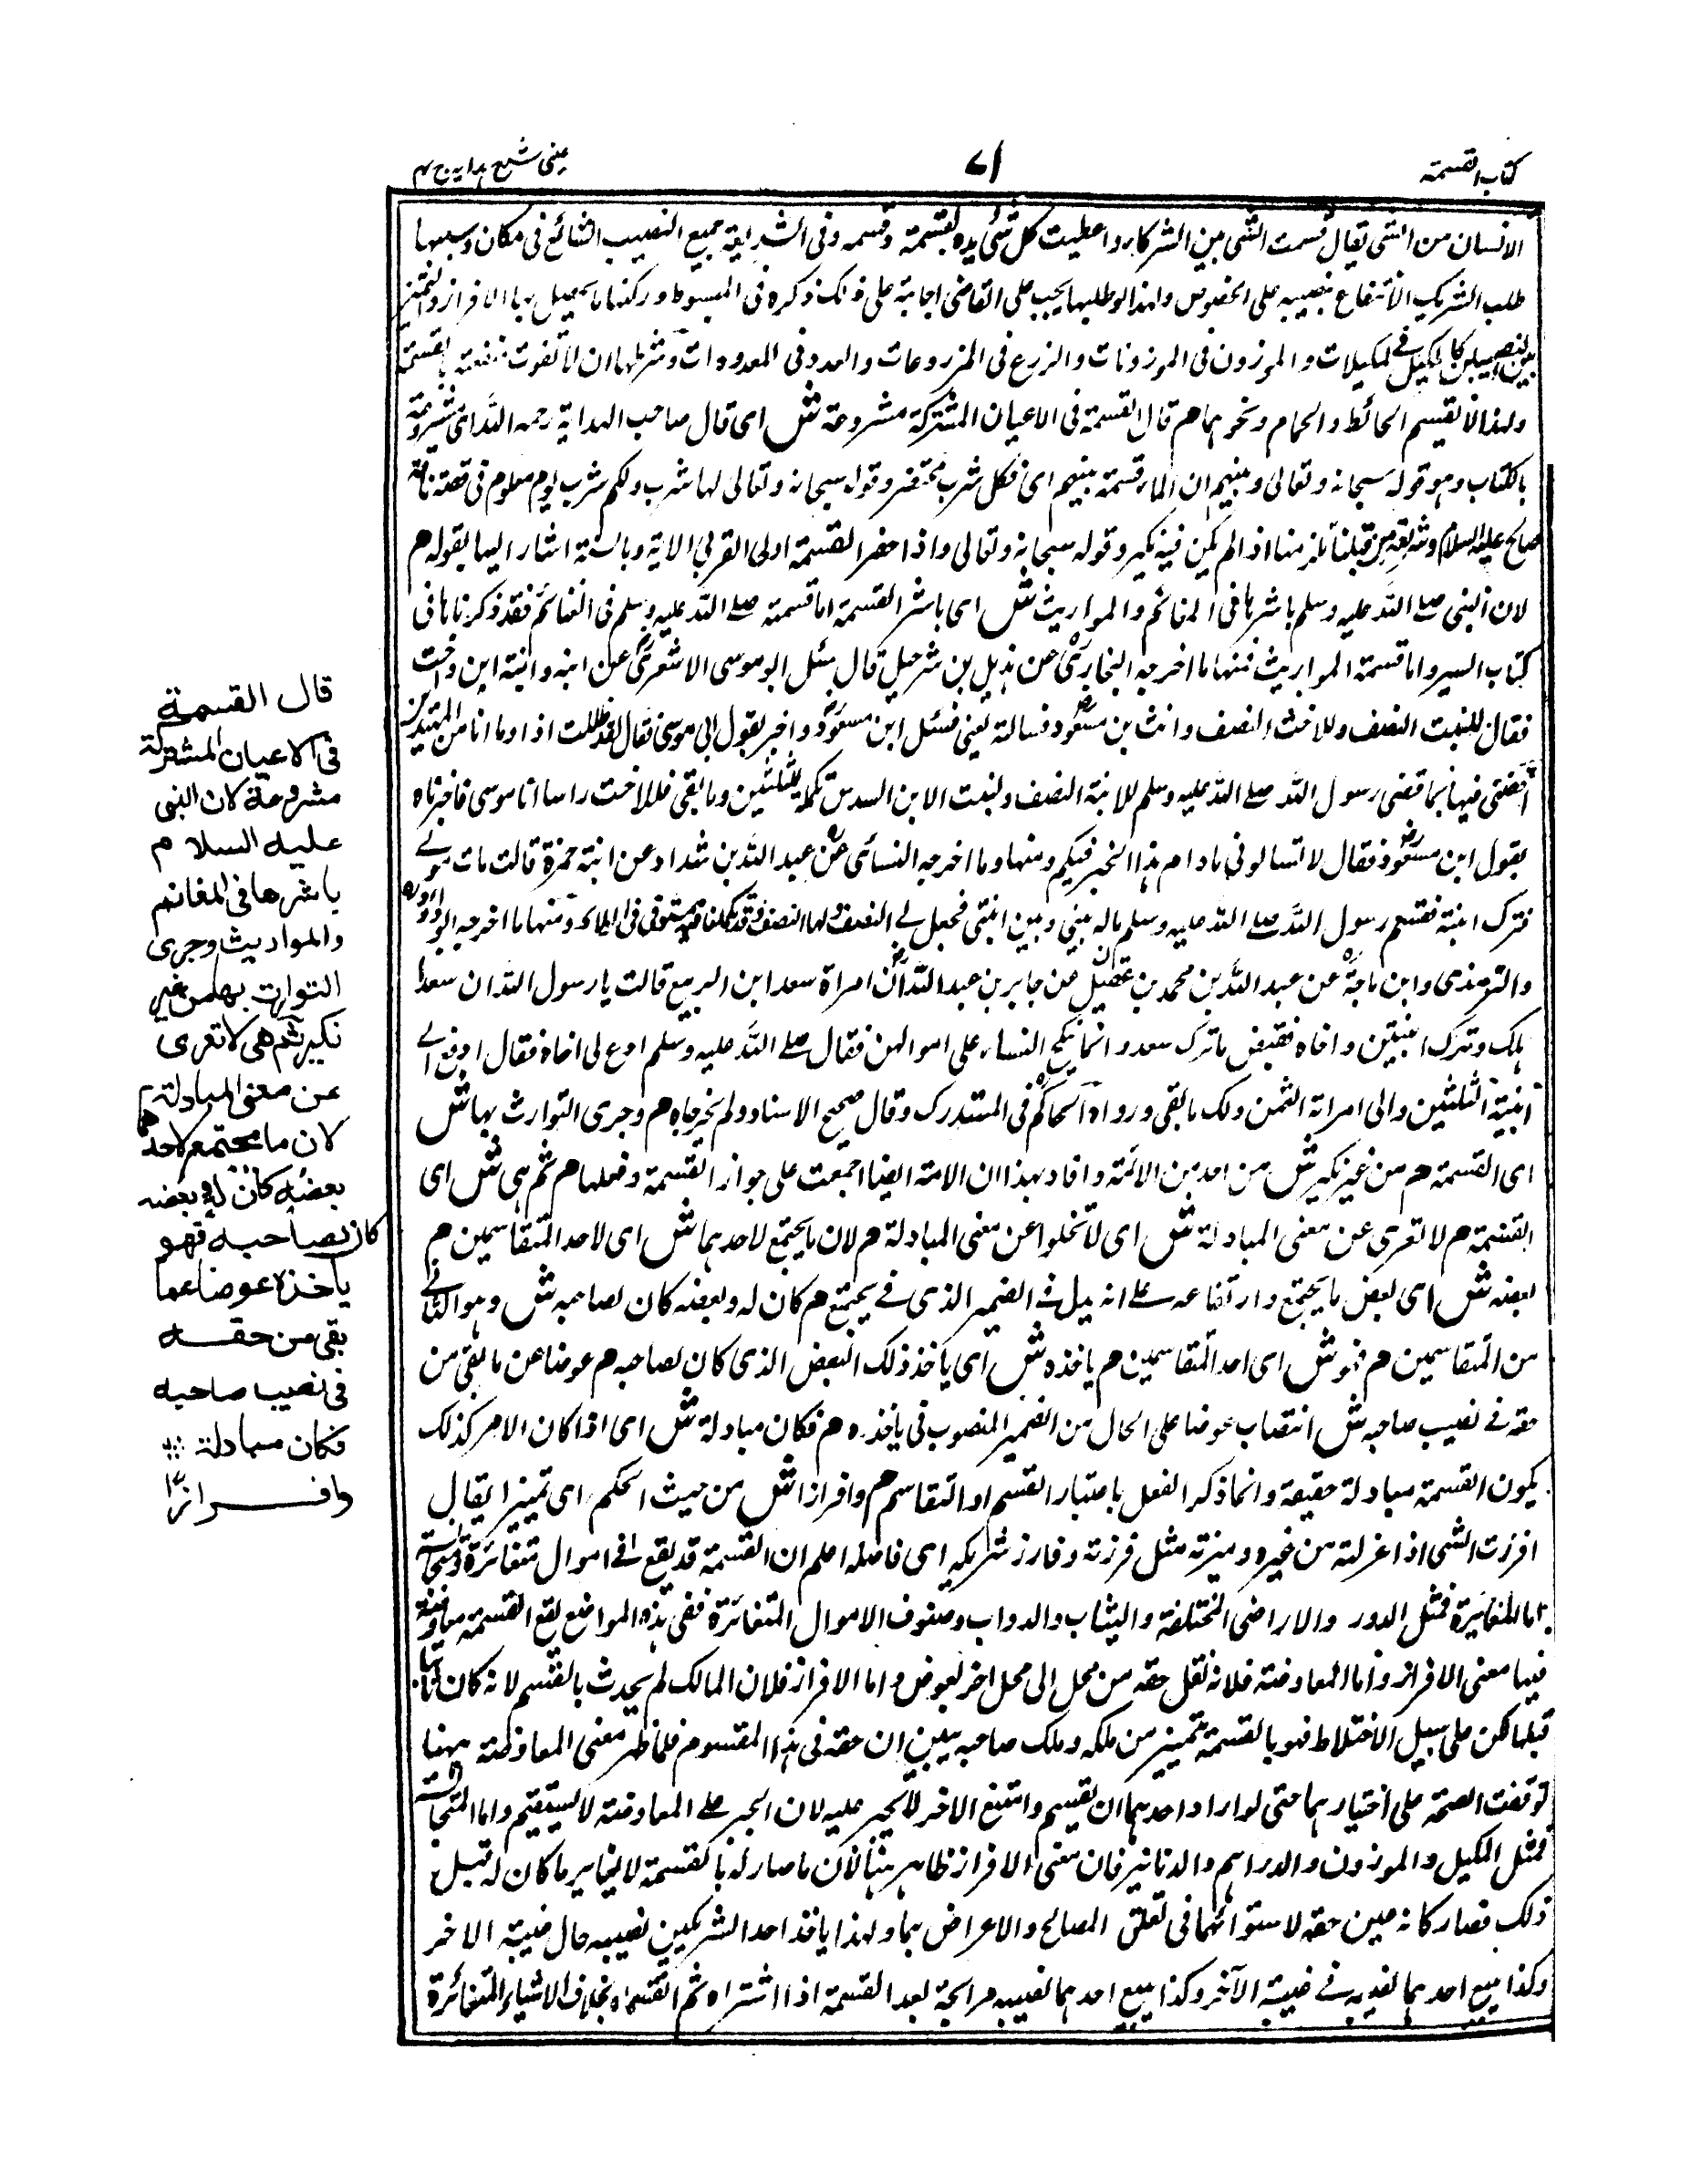 كتاب القسمة
٧١
عينى شرح هدايه ج ٤
الانسان من الشى يقال قسمت الشى بين الشركاء واعطيت كل شى يده بقسمة وقسمه وفى الشريعة جميع النصيب الشائع فى مكان وسببها
طلب الشريك الانتفاع بنصيبه على الخصوص ولهذا لو طلبها يجب على القاضى اجابته على ذلك ذكره فى المبسوط وركنها ما يحصل به الافراز والتمييز
بين النصيبين كالكيل فى المكيلات والموزون فى الموزونات والزرع فى المزروعات والعدد فى المعدودات وشرطها ان لا تفوت منفعته بالقسمة
ولهذا لا يقسم الحائط والحمام ونحوهما هم قال القسمة فى الاعيان المشتركة مشروعة ش اى قال صاحب الهداية رحمه الله اى مشروعة
بالكتاب وهو قوله سبحانه وتعالى ونبئهم ان الماء قسمة بينهم اى فكل شرب محتضر وقوله سبحانه وتعالى لها شرب ولكم شرب يوم معلوم فى قصة ناقة
صالح عليه السلام وشريعة من قبلنا يلزمنا اذا لم يكن فيه نكير وقوله سبحانه وتعالى واذا حضر القسمة اولى القربى الاية وبالسنة اشار اليها بقوله هم
لان النبى صلے الله عليه وسلم باشرها فى المغانم والمواريث ش اى باشر القسمة اما قسمته صلے الله عليه وسلم فى الغنائم فقد ذكرناها فى
كتاب السير واما قسمة المواريث فمنها ما اخرجه البخارى عن هذيل بن شرحبيل قال سئل ابو موسى الاشعرى عن ابنه وابنة ابن واخت
فقال للبنت النصف وللاخت النصف وائت بن مسعود فسالته يعنى فسئل ابن مسعود واخبر بقول ابى موسى فقال لقد ظللت اذا وما انا من المهتدين
اقضى فيها بما قضى رسول الله صلے الله عليه وسلم للابنة النصف ولبنت الابن السدس تكملة للثلثين وما بقى فللاخت راسا انا موسى فاخبرناه
بقول ابن مسعود فقال لا تسالونى ما دام هذا الخبر فيكم ومنها وما اخرجه النسائى عن عبد الله بن شداد عن ابنة حمزة قالت مات مولى لى
فترك ابنة فقسم رسول الله صلے الله عليه وسلم ماله بينى وبين ابنتى فجعل لى النصف ولها النصف وقد تكلمنا فيه مستوفى فى الولاء ومنها ما اخرجه ابو داؤد
والترمذى وابن ماجة عن عبد الله بن محمد بن عقيل عن جابر بن عبد الله ان امراة سعد ابن الربيع قالت يا رسول الله ان سعدا
هلك وترك ابنتين واخاه فقبض ما ترك سعد وانما ينكح النساء على اموالهن فقال صلے الله عليه وسلم ادع لى اخاه فقال ادفع الى
ابنتيه الثلثين والى امراته الثمن ولك ما بقى ورواه الحاكم فى المستدرك وقال صحيح الاسناد ولم يخرجاه هم وجرى التوارث بها ش
اى القسمة هم من غير نكير ش من احد من الائمة وافاد بهذا ان الامة ايضا اجمعت على جواز القسمة وفعلها هم ثم هى ش اى
القسمة هم لا تعرى عن معنى المبادلة ش اى لا تخلوا عن معنى المبادلة هم لان ما يجتمع لاحدهما ش اى لاحد المتقاسمين هم
بعضه ش اى بعض ما يجتمع وارتفاعه على انه بدل فى الضمير الذى فى يجتمع هم كان له وبعضه كان لصاحبه ش وهو الثانى
من المتقاسمين هم فهو ش اى احد المتقاسمين هم ياخذه ش اى ياخذ ذلك البعض الذى كان لصاحبه هم عوضا عن ما بقى من
حقه فى نصيب صاحبه ش انتصاب عوضا على الحال من الضمير المنصوب فى ياخذه هم فكان مبادلة ش اى اذا كان الامر كذلك
يكون القسمة مبادلة حقيقة وانما ذكر الفعل باعتبار القسم او التقاسم هم وافرازا ش من حيث الحكم اى تمييزا يقال
افرزت الشى اذا عزلته من غيره وميزته مثل فرزته وفارز شريكه اى فاصله اعلم ان القسمة قد يقع فى اموال متغائرة
اما المغايرة فمثل الدور والاراضى المختلفة والثياب والدواب وصنوف الاموال المتغائرة ففى هذه المواضع يقع القسمة معاوضة
فيها معنى الافراز واما المعاوضة فلانه نقل حقه من محل الى محل اخر بعوض واما الافراز فلان المالك لم يحدث بالقسم لانه كان ثابتا
قبلها لكن على سبيل الاختلاط فهو بالقسمة يتميز من ملكه وملك صاحبه يبين ان حقه فى هذا المقسوم فلما ظهر معنى المعاوضة ههنا
توقفت الصحة على اختيارهما حتى لو اراد احدهما ان يقسم وامتنع الاخر لا يجبر عليه لان الجبر على المعاوضة لا يستقيم واما المتجانسة
فمثل المكيل والموزون والدراهم والدنانير فان معنى الافراز ظاهر هنا لان ما صار له بالقسمة لا يغاير ما كان له قبل
ذلك فصار كانه عين حقه لاستوائهما فى تعلق المصالح والاعراض بهما ولهذا ياخذ احد الشريكين نصيبه حال غيبة الاخر
وكذا يبيع احدهما نصيبه فى غيبة الآخر وكذا يبيع احدهما نصيبه مرابحة بعد القسمة اذا اشتراه ثم اقتسماه بخلاف الاشياء المتغائرة
قال القسمة
فى الاعيان المشتركة
مشروعة لان النبى
عليه السلام
باشرها فى المغانم
والمواريث وجرى
التوارث بها من غير
نكير ثم هى لا تعرى
عن معنى المبادلة
لان ما يجتمع لاحدهما
بعضه كان له وبعضه
كان لصاحبه فهو
ياخذه عوضا عما
بقى من حقه
فى نصيب صاحبه
فكان مبادلة
وافرازا